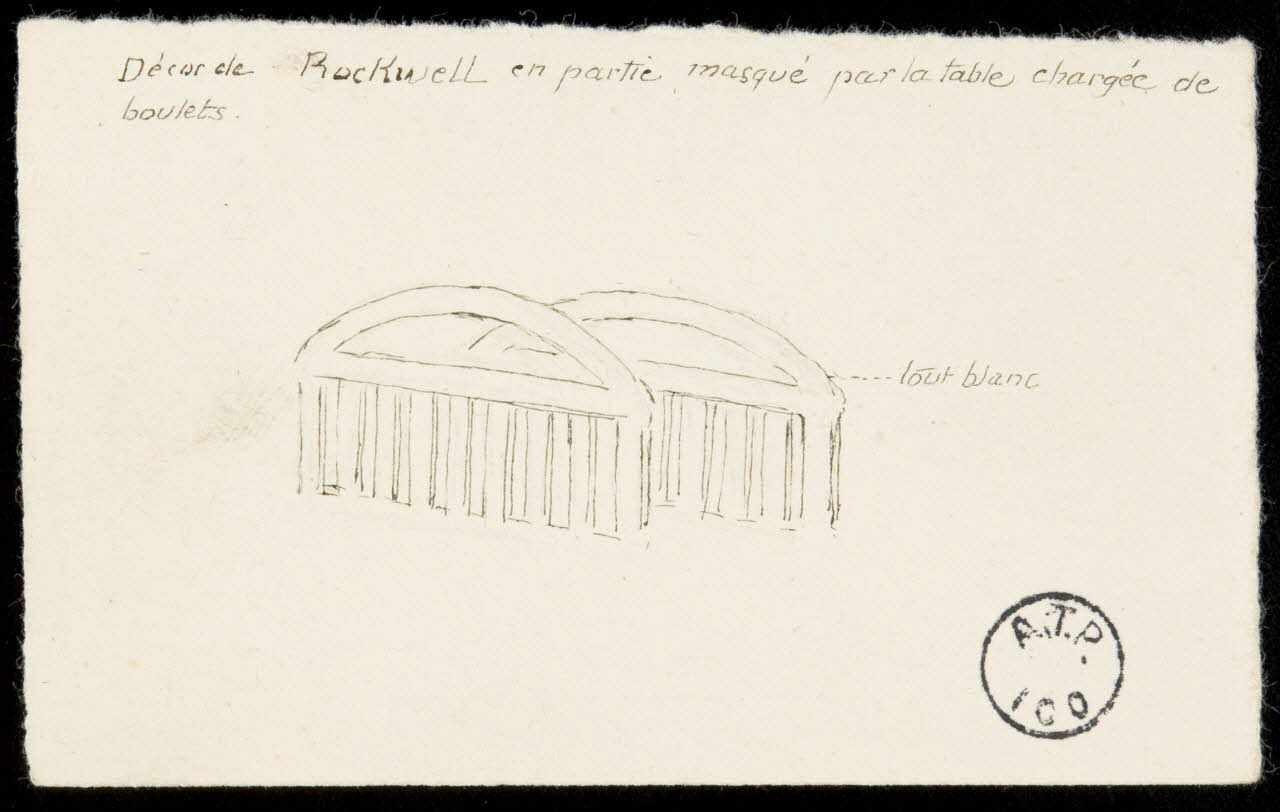 Décor de Rockwell en partie masqué par la table chargée de
boulets.
tout blanc
A.T.P.
ICO